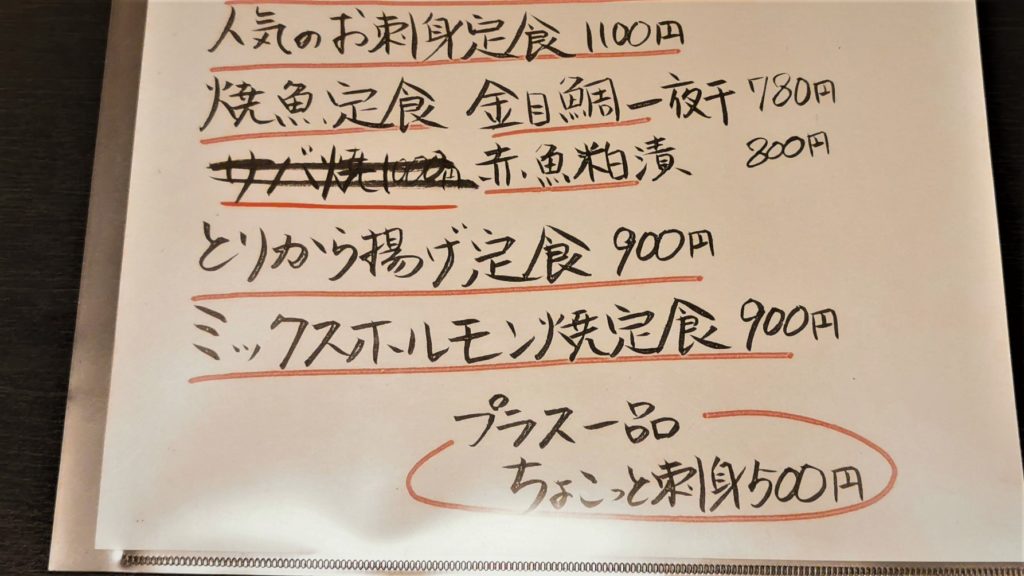 人気のお刺身定食 1100円
焼魚定食 金目鯛一夜干 780円
サバ焼 赤魚粕漬 800円
とりから揚げ定食 900円
ミックスホルモン焼定食 900円
プラス一品
ちょこっと刺身500円